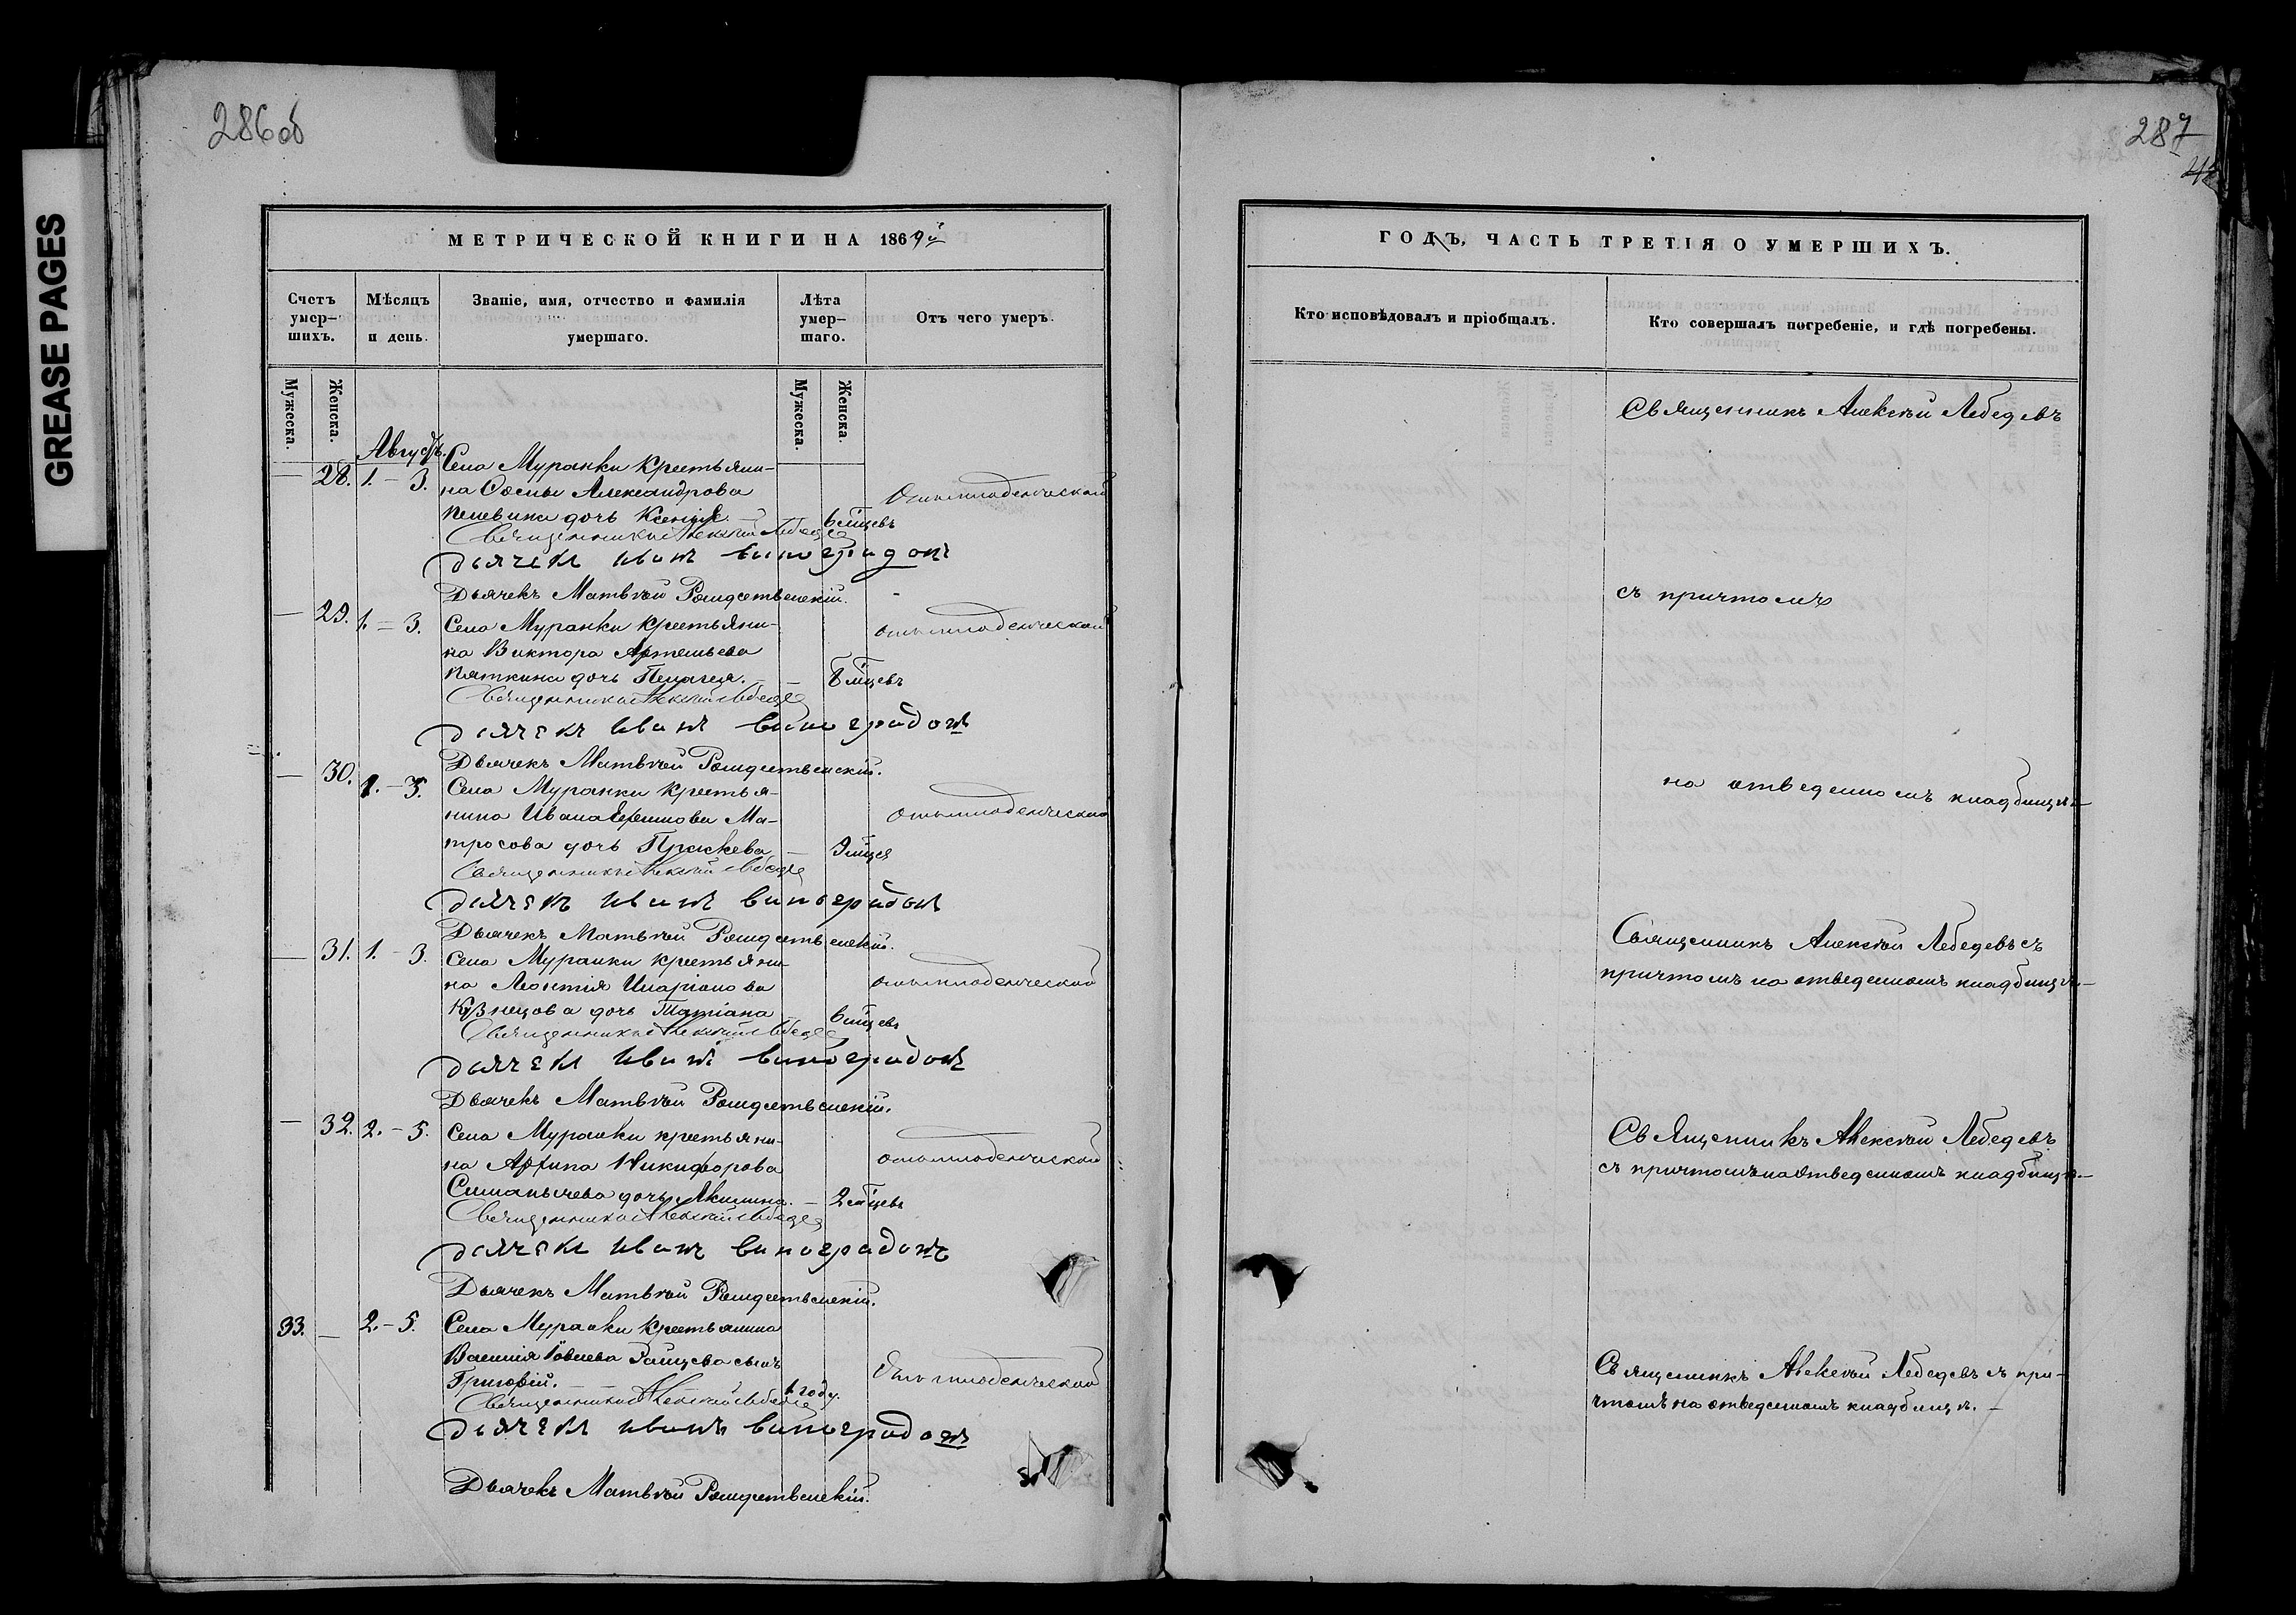 GREASE PAGES
286об
МЕТРИЧЕСКОЙ КНИГИ НА 1869й
Счетъ умер-
шихъ.
Мѣсяцъ
и день.
Званіе, имя, отчество и фамилія
умершаго.
Лѣта
умер-
шаго.
Отъ чего умеръ.
Мужеска.
Женска.
Мужеска.
Женска.
Августъ.
— 28. 1. – 3. Села Муранки крестьяни-
на Александрова
дочь Ксенія. 6 мцевъ
Отъ младенческой
Священникъ Алексѣй Лебедев
дьячекъ иванъ виноградовъ
Дьячекъ Матвѣй Рождественскій.
— 29. 1. – 3. Села Муранки крестьяни-
на Виктора Артемьева
Пяткина дочь Пелагея. – 8 мцевъ
отъ младенческой
Священникъ Алексѣй Лебедев
дьячекъ иванъ виноградовъ
Дьячекъ Матвѣй Рождественскій.
— 30. 1. – 3. Села Муранки крестья-
нина Ивана Ма-
тросова дочь Праскева – 9 мцев
отъ младенческой
Священникъ Алексѣй Лебедев
дьячекъ иванъ виноградовъ
Дьячекъ Матвѣй Рождественскій.
— 31. 1. – 3. Села Муранки крестьяни-
на Леонтія Иларіонова
Кузнецова дочь Татіана 6 мцевъ
отъ младенческой
Священникъ Алексѣй Лебедев
дьячекъ иванъ виноградовъ
Дьячекъ Матвѣй Рождественскій.
— 32. 2. – 5. Села Муранки крестьяни-
на Архипа Никифорова
дочь Акилина. – 2 мцевъ
отъ младенческой
Священникъ Алексѣй Лебедев
дьячекъ иванъ виноградовъ
Дьячекъ Матвѣй Рождественскій.
33. — 2. – 5. Села Муранки крестьянина
Василія сынъ
Григорій. 1 году.
Отъ младенческой
Священникъ Алексѣй Лебедев
дьячекъ иванъ виноградовъ
Дьячекъ Матвѣй Рождественскій.
287
ГОДЪ, ЧАСТЬ ТРЕТІЯ О УМЕРШИХЪ.
Кто исповѣдовалъ и пріобщалъ.
Кто совершалъ погребеніе, и гдѣ погребены.
Священникъ Алексѣй Лебедевъ
съ причтомъ
на отведенномъ кладбищѣ –
Священникъ Алексѣй Лебедевъ съ
причтомъ на отведенномъ кладбищѣ. –
Священникъ Алексѣй Лебедевъ
съ причтомъ на отведенномъ кладбищѣ. –
Священникъ Алексѣй Лебедевъ съ при-
чтомъ на отведенномъ кладбищѣ. –